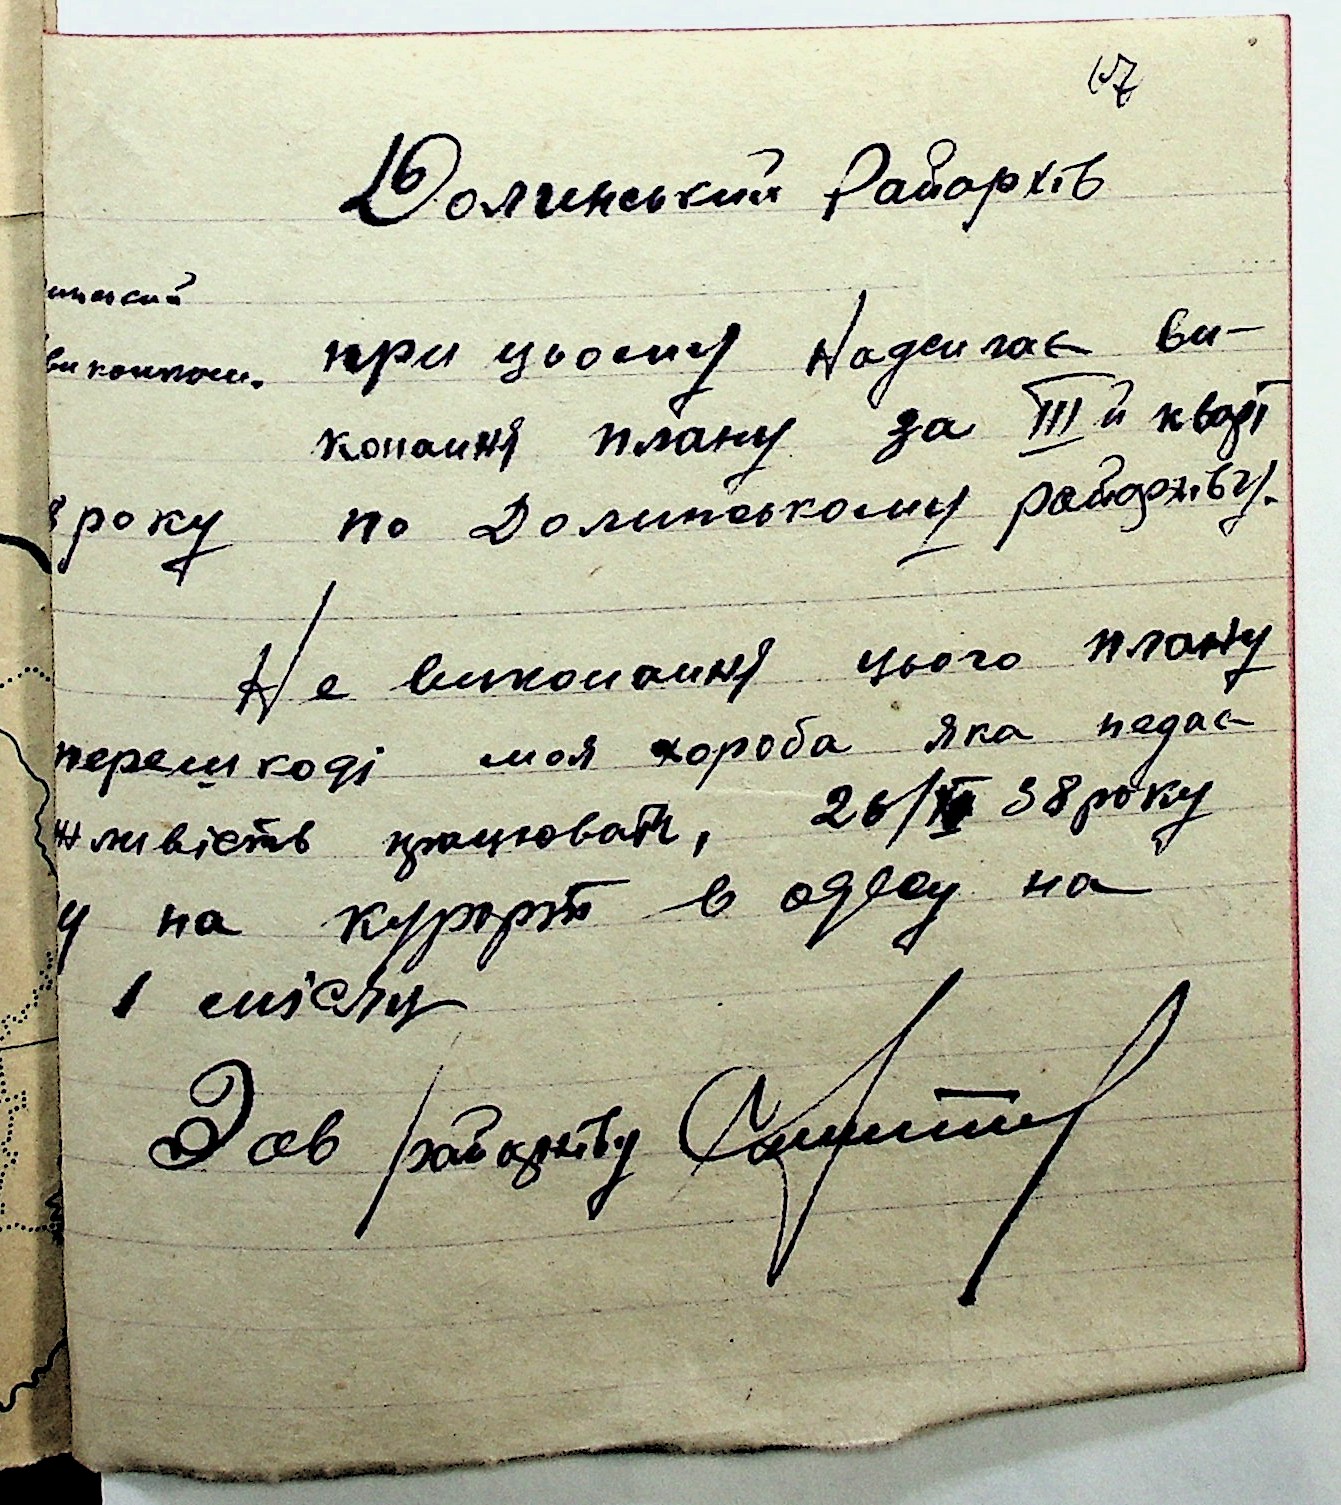 17
Долинський Райархів
инський
виконком.
при цьому надсилає ви-
конання плану за III й кварт
8 року по Долинському райархіву.
Не виконання цього плану
перешкоді моя хороба яка недає
жливість працювати, 26/ 38 року
у на курорт в одесу на
1 місяц
Зав райархіву